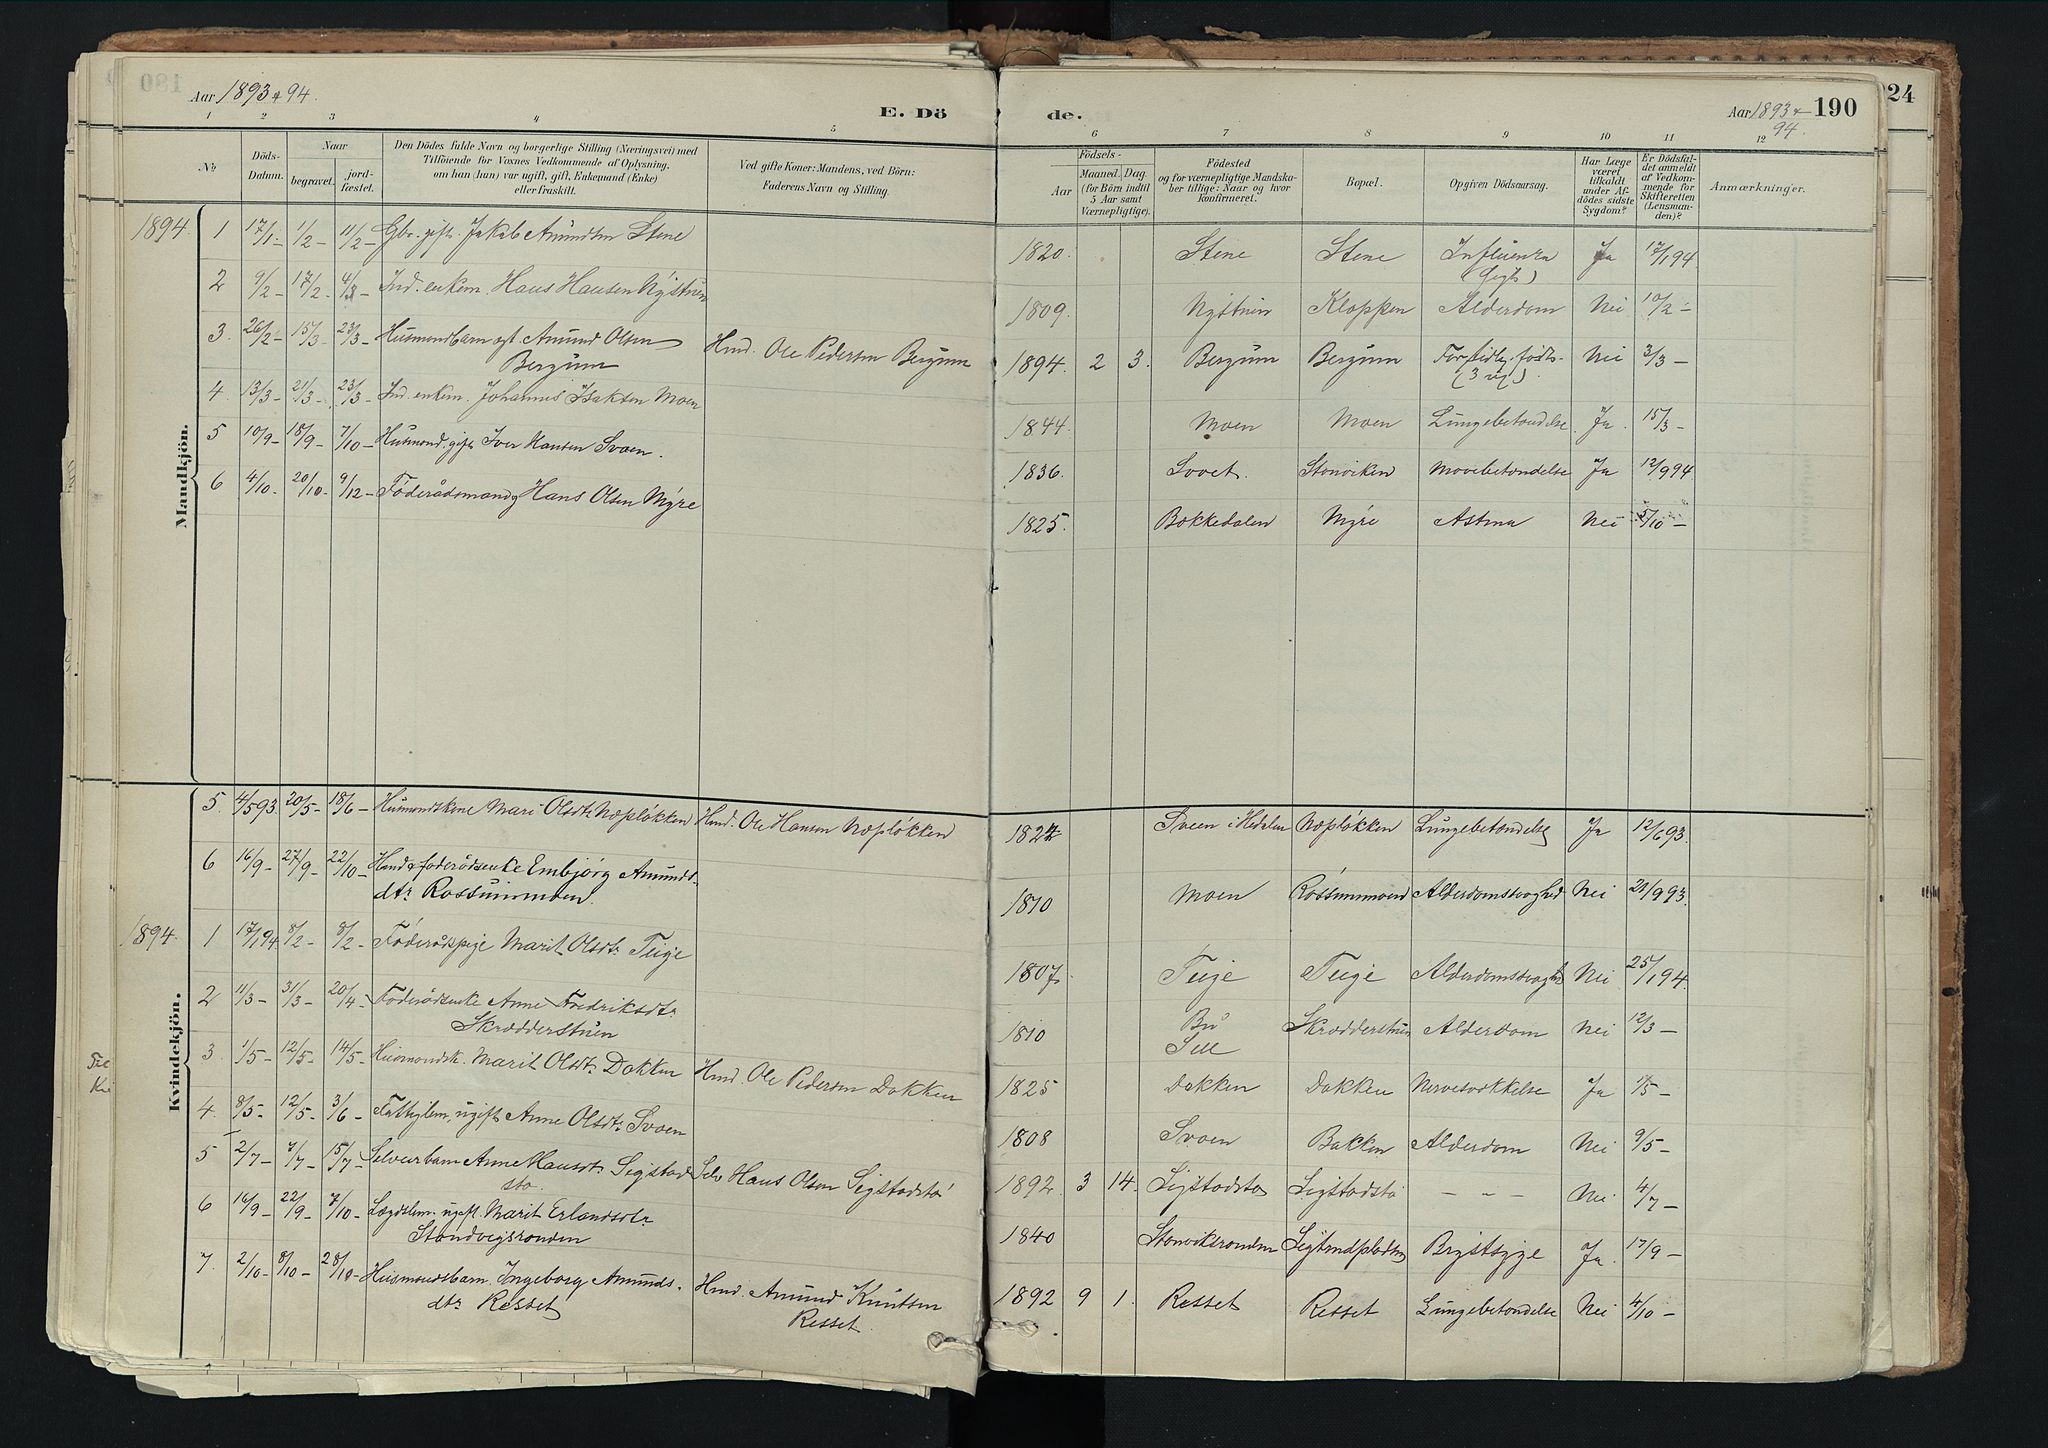 Aar 1893 & 94.
E. Dö
de.
Aar 1893 & 94.
190
24
1 2 3 4 5 6 7 8 9 10 11 12
No
Döds-Datum.
Naar
begravet.
jord-fæstet.
Den Dödes fulde Navn og borgerlige Stilling (Næringsvei) med
Tilföiende for Voxnes Vedkommende af Oplysning,
om han (hun) var ugift, gift, Enkemand (Enke)
eller fraskilt.
Ved gifte Koner: Mandens, ved Börn:
Faderens Navn og Stilling.
Födsels-
Aar
Maaned. Dag.
(for Börn indtil
5 Aar samt
Værnepligtige).
Födested
og for værnepligtige Mandska-
ber tillige: Naar og hvor
konfirmeret.
Bopæl.
Opgiven Dödsaarsag.
Har Læge
været
tilkaldt
under Af-
dödes sidste
Sygdom?
Er Dödsfal-
det anmeldt
af Vedkom-
mende for
Skifteretten
(Lensman-
den)?
Anmærkninger.
Mandkjön.
1894. 1 17/1 - 1/2 - 11/2 - Gbr. gift. Jakob Amundsen Stene 1820. Stene Stene Influenza (Gigt) Ja 17/1 94
2 9/2 - 17/2 - 4/3 - Ind. enkem. Hans Hansen Nystuen 1809. Nystuen Kloppen Alderdom Nei 10/2 -
3 26/2 - 15/3 - 23/3 - Husmandsbarn Amund Olsen Bergum Hmd. Ole Pedersen Bergum 1894. 2 3. Bergum Bergum For tidlig født Nei 3/3 -
4 13/3 - 21/3 - 23/3 - Ind. enkem. Johannes Isaksen Moen 1844. Moen Moen Lungebetændelse Ja 15/3 -
5 10/9 - 18/9 - 7/10 - Husmand. gift Iver Hansen Svoen. 1836. Stenviken Mavebetændelse Ja 12/9 94
6 4/10 - 20/10 - 9/12 - Föderådsmand Hans Olsen Myre 1825. Bakkedalen Myre Astma Nei 5/10 -
Kvindekjön.
5 4/5 93 20/5 - 18/6 - Husmandskone Mari Olsdtr. Næpløkken Hmd. Ole Hansen Næpløkken 1824 Sveen i Hedalen Næpløkken Lungebetændelse Ja 12/6 93.
6 16/9 - 27/9 - 22/10 - Hmd. & foderådsenke Embjørg Amunds-
dtr. Rossummoen. 1810 Moen Rossummoen Alderdomssvaghed Nei 21/9 93.
1894. 1 17/1 94 8/2 - 8/2 - Föderådspige Marit Olsdtr. Teige 1807. Teige Teige Alderdomssvaghed Nei 25/1 94.
2 11/3 - 31/3 - 20/4 - Föderådsenke Anne Fredriksdtr.
Skrædderstuen 1810 Bø Sell Skrædderstuen Alderdom Nei 12/3 -
3 1/5 - 12/5 - 14/5 - Husmandsk. Marit Olsdtr. Dokken Hmd. Ole Pedersen Dokken 1825 Dokken Dokken Nervesvækkelse Ja 1/5 -
4 8/5 - 12/5 - 3/6 - Fattiglem, ugift Anne Olsdtr. Svoen 1808 Svoen Bakken Alderdom Nei 9/5 -
5 2/7 - 7/7 - 15/7 - Selveierbarn Anne Hansdtr. Sigstad-
stø. Selv. Hans Olsen Sigstadstø 1892. 3 14. Sigstadstø Sigstadstø - - - Nei 4/7 -
6 16/9 - 22/9 - 7/10 - Lægdslem. ugift. Marit Erlandsdtr.
Standvigsronden 1840 Stenviksronden Brystsyge Ja. 17/9 -
7. 2/10 - 8/10 - 28/10 - Husmandsbarn. Ingeborg Amunds-
dtr. Resset Hmd. Amund Knutsen
Resset. 1892. 9 1. Resset Resset Lungebetændelse Nei 4/10 -